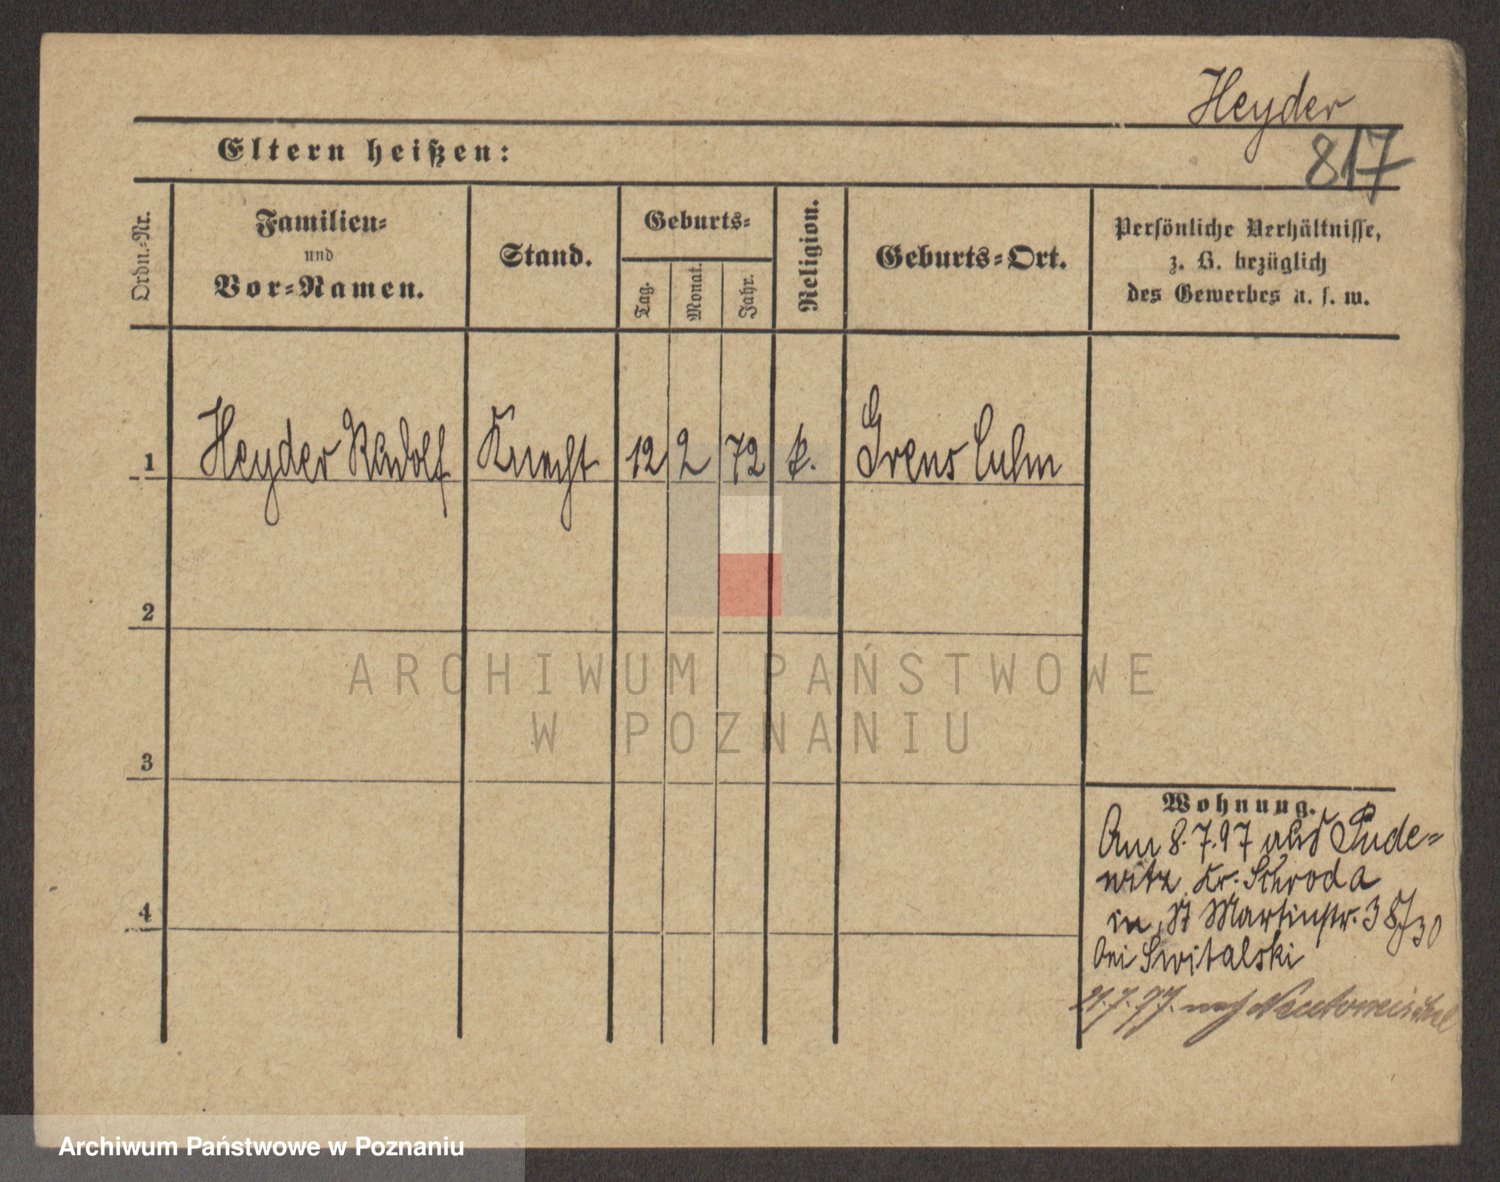 Heyder
817
Eltern heißen:
Ordn.-Nr.
Familien-
und
Vor-Namen.
Stand.
Geburts-
Tag.
Monat.
Jahr.
Religion.
Geburts-Ort.
Persönliche Verhältnisse,
z. B. bezüglich
des Gewerbes u. s. w.
1 Heyder Rudolf Knecht 12 2 72 k. Culm
2
3
4
Wohnung.
Am 8.7.97 aus Pude-
witz Kr. Schroda
in St Martinstr. 38/30
bei Switalski
7.97. nach Neutomischel
ARCHIWUM PAŃSTWOWE
W POZNANIU
Archiwum Państwowe w Poznaniu